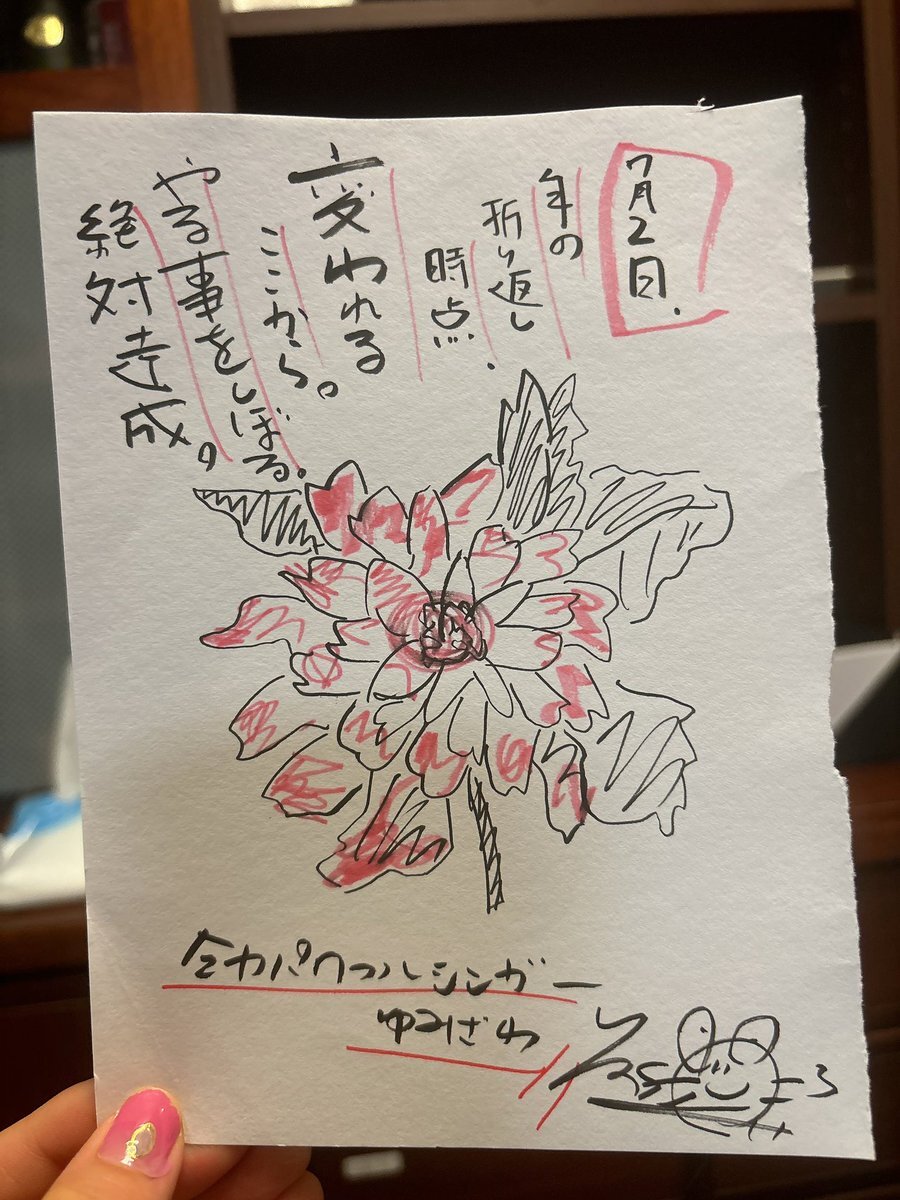 7月2日.
年の
折り返し
時点.
変われる
ここから。
やる事をしぼる。
絶対達成。
全力パワフルシンガー
ゆみざわ